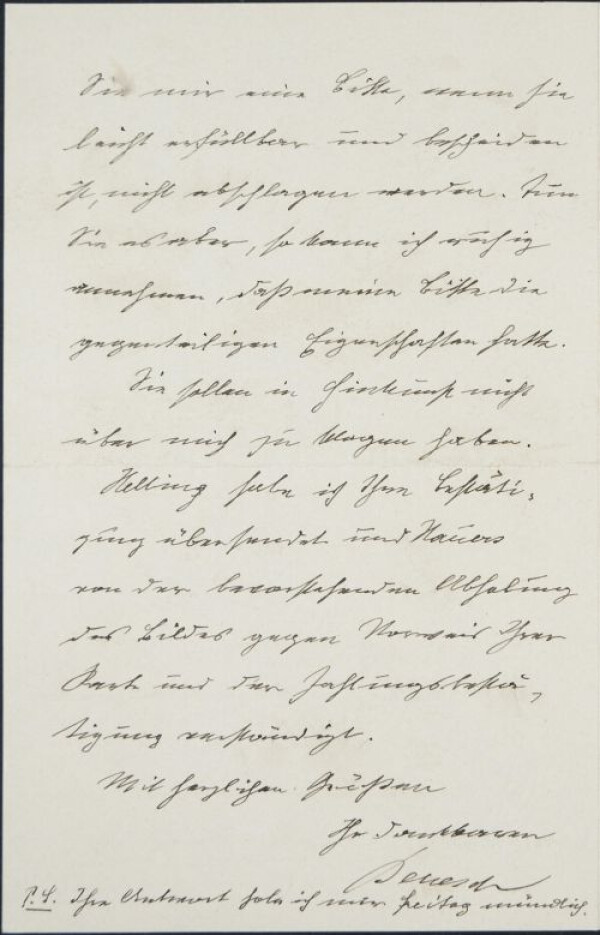 Sie mir eine Bitte, wenn sie
leicht erfüllbar und bescheiden
ist, nicht abschlagen werden. Tun
Sie es aber, so kann ich ruhig
annehmen, daß meine Bitte die
gegenteiligen Eigenschaften hatte.
Sie sollen in Hinkunft nicht
über mich zu klagen haben.
Helling habe ich Ihre Bestäti-
gung übersendet und Hauers
von der bevorstehenden Abholung
des Bildes gegen Vorweis Ihrer
Karte und der Zahlungsbestä-
tigung verständigt.
Mit herzlichen Grüßen
Ihr dankbaren
Benesch
P.S. Ihre Antwort hole ich mir Freitag mündlich.